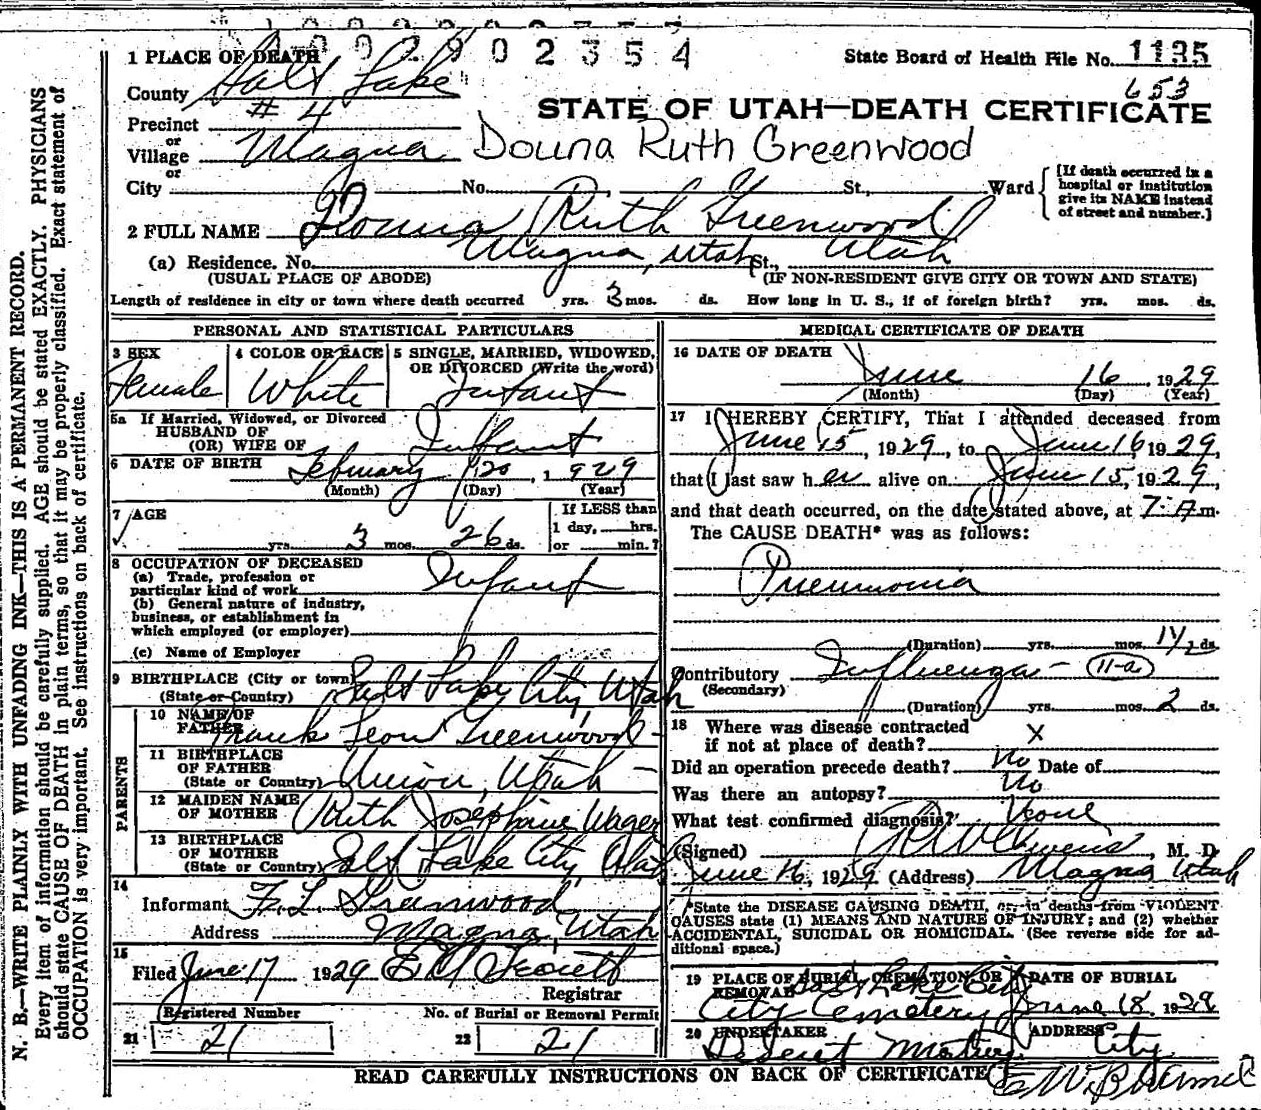 1 0 0 2 9 0 2 3 5 4
1 PLACE OF DEATH
State Board of Health File No. 1135
653
County Salt Lake
STATE OF UTAH—DEATH CERTIFICATE
Precinct # 4
or
Village Magna
Donna Ruth Greenwood
or
City No. St., Ward
[If death occurred in a hospital or institution give its NAME instead of street and number.]
2 FULL NAME Donna Ruth Greenwood
(a) Residence. No. Magna, Utah St., Utah
(USUAL PLACE OF ABODE) (IF NON-RESIDENT GIVE CITY OR TOWN AND STATE)
Length of residence in city or town where death occurred yrs. 3 mos. ds. How long in U. S., if of foreign birth? yrs. mos. ds.
PERSONAL AND STATISTICAL PARTICULARS
3 SEX
Female
4 COLOR OR RACE
White
5 SINGLE, MARRIED, WIDOWED, OR DIVORCED (Write the word)
Infant
5a If Married, Widowed, or Divorced
HUSBAND OF
(OR) WIFE OF Infant
6 DATE OF BIRTH February 20, 1929
(Month) (Day) (Year)
7 AGE
yrs. 3 mos. 26 ds.
If LESS than
1 day, hrs.
or min.?
8 OCCUPATION OF DECEASED
(a) Trade, profession or
particular kind of work Infant
(b) General nature of industry,
business, or establishment in
which employed (or employer)
(c) Name of Employer
9 BIRTHPLACE (City or town) Salt Lake City, Utah
(State or Country)
PARENTS
10 NAME OF
FATHER Frank Leon Greenwood
11 BIRTHPLACE
OF FATHER
(State or Country) Union, Utah
12 MAIDEN NAME
OF MOTHER Ruth Josephine Wager
13 BIRTHPLACE
OF MOTHER
(State or Country) Salt Lake City, Utah
14
Informant F. L. Greenwood
Address Magna, Utah
15
Filed June 17 1929
Registrar
Registered Number
21 21
No. of Burial or Removal Permit
22 21
MEDICAL CERTIFICATE OF DEATH
16 DATE OF DEATH
June 16, 1929
(Month) (Day) (Year)
17 I HEREBY CERTIFY, That I attended deceased from
June 15, 1929, to June 16 1929,
that I last saw her alive on June 15, 1929,
and that death occurred, on the date stated above, at 7: A m.
The CAUSE DEATH* was as follows:
Pneumonia
(Duration) yrs. mos. 1 1/2 ds.
Contributory Influenza - 11-a
(Secondary)
(Duration) yrs. mos. 2 ds.
18 Where was disease contracted
if not at place of death? X
Did an operation precede death? No Date of
Was there an autopsy? No
What test confirmed diagnosis? None
(Signed) , M. D.
June 16, 1929 (Address) Magna Utah
*State the DISEASE CAUSING DEATH, or, in deaths from VIOLENT
CAUSES state (1) MEANS AND NATURE OF INJURY; and (2) whether
ACCIDENTAL, SUICIDAL OR HOMICIDAL. (See reverse side for ad-
ditional space.)
19 PLACE OF BURIAL CREMATION OR
REMOVAL Salt Lake City
City Cemetery
DATE OF BURIAL
June 18, 1929
20 UNDERTAKER
Deseret Mortuary
ADDRESS
City
READ CAREFULLY INSTRUCTIONS ON BACK OF CERTIFICATE
N. B.—WRITE PLAINLY WITH UNFADING INK—THIS IS A PERMANENT RECORD.
Every item of information should be carefully supplied. AGE should be stated EXACTLY. PHYSICIANS
should state CAUSE OF DEATH in plain terms, so that it may be properly classified. Exact statement of
OCCUPATION is very important. See instructions on back of certificate.